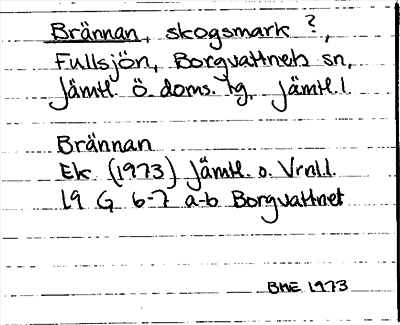 Brännan, skogsmark ?,
Fullsjön, Borgvattnets sn,
Jämtl. Ö. doms. tg, Jämtl. l.
Brännan
Ek. (1973) Jämtl. o. Vrnl. l.
19 G 6-7 a-b Borgvattnet
BME 1973